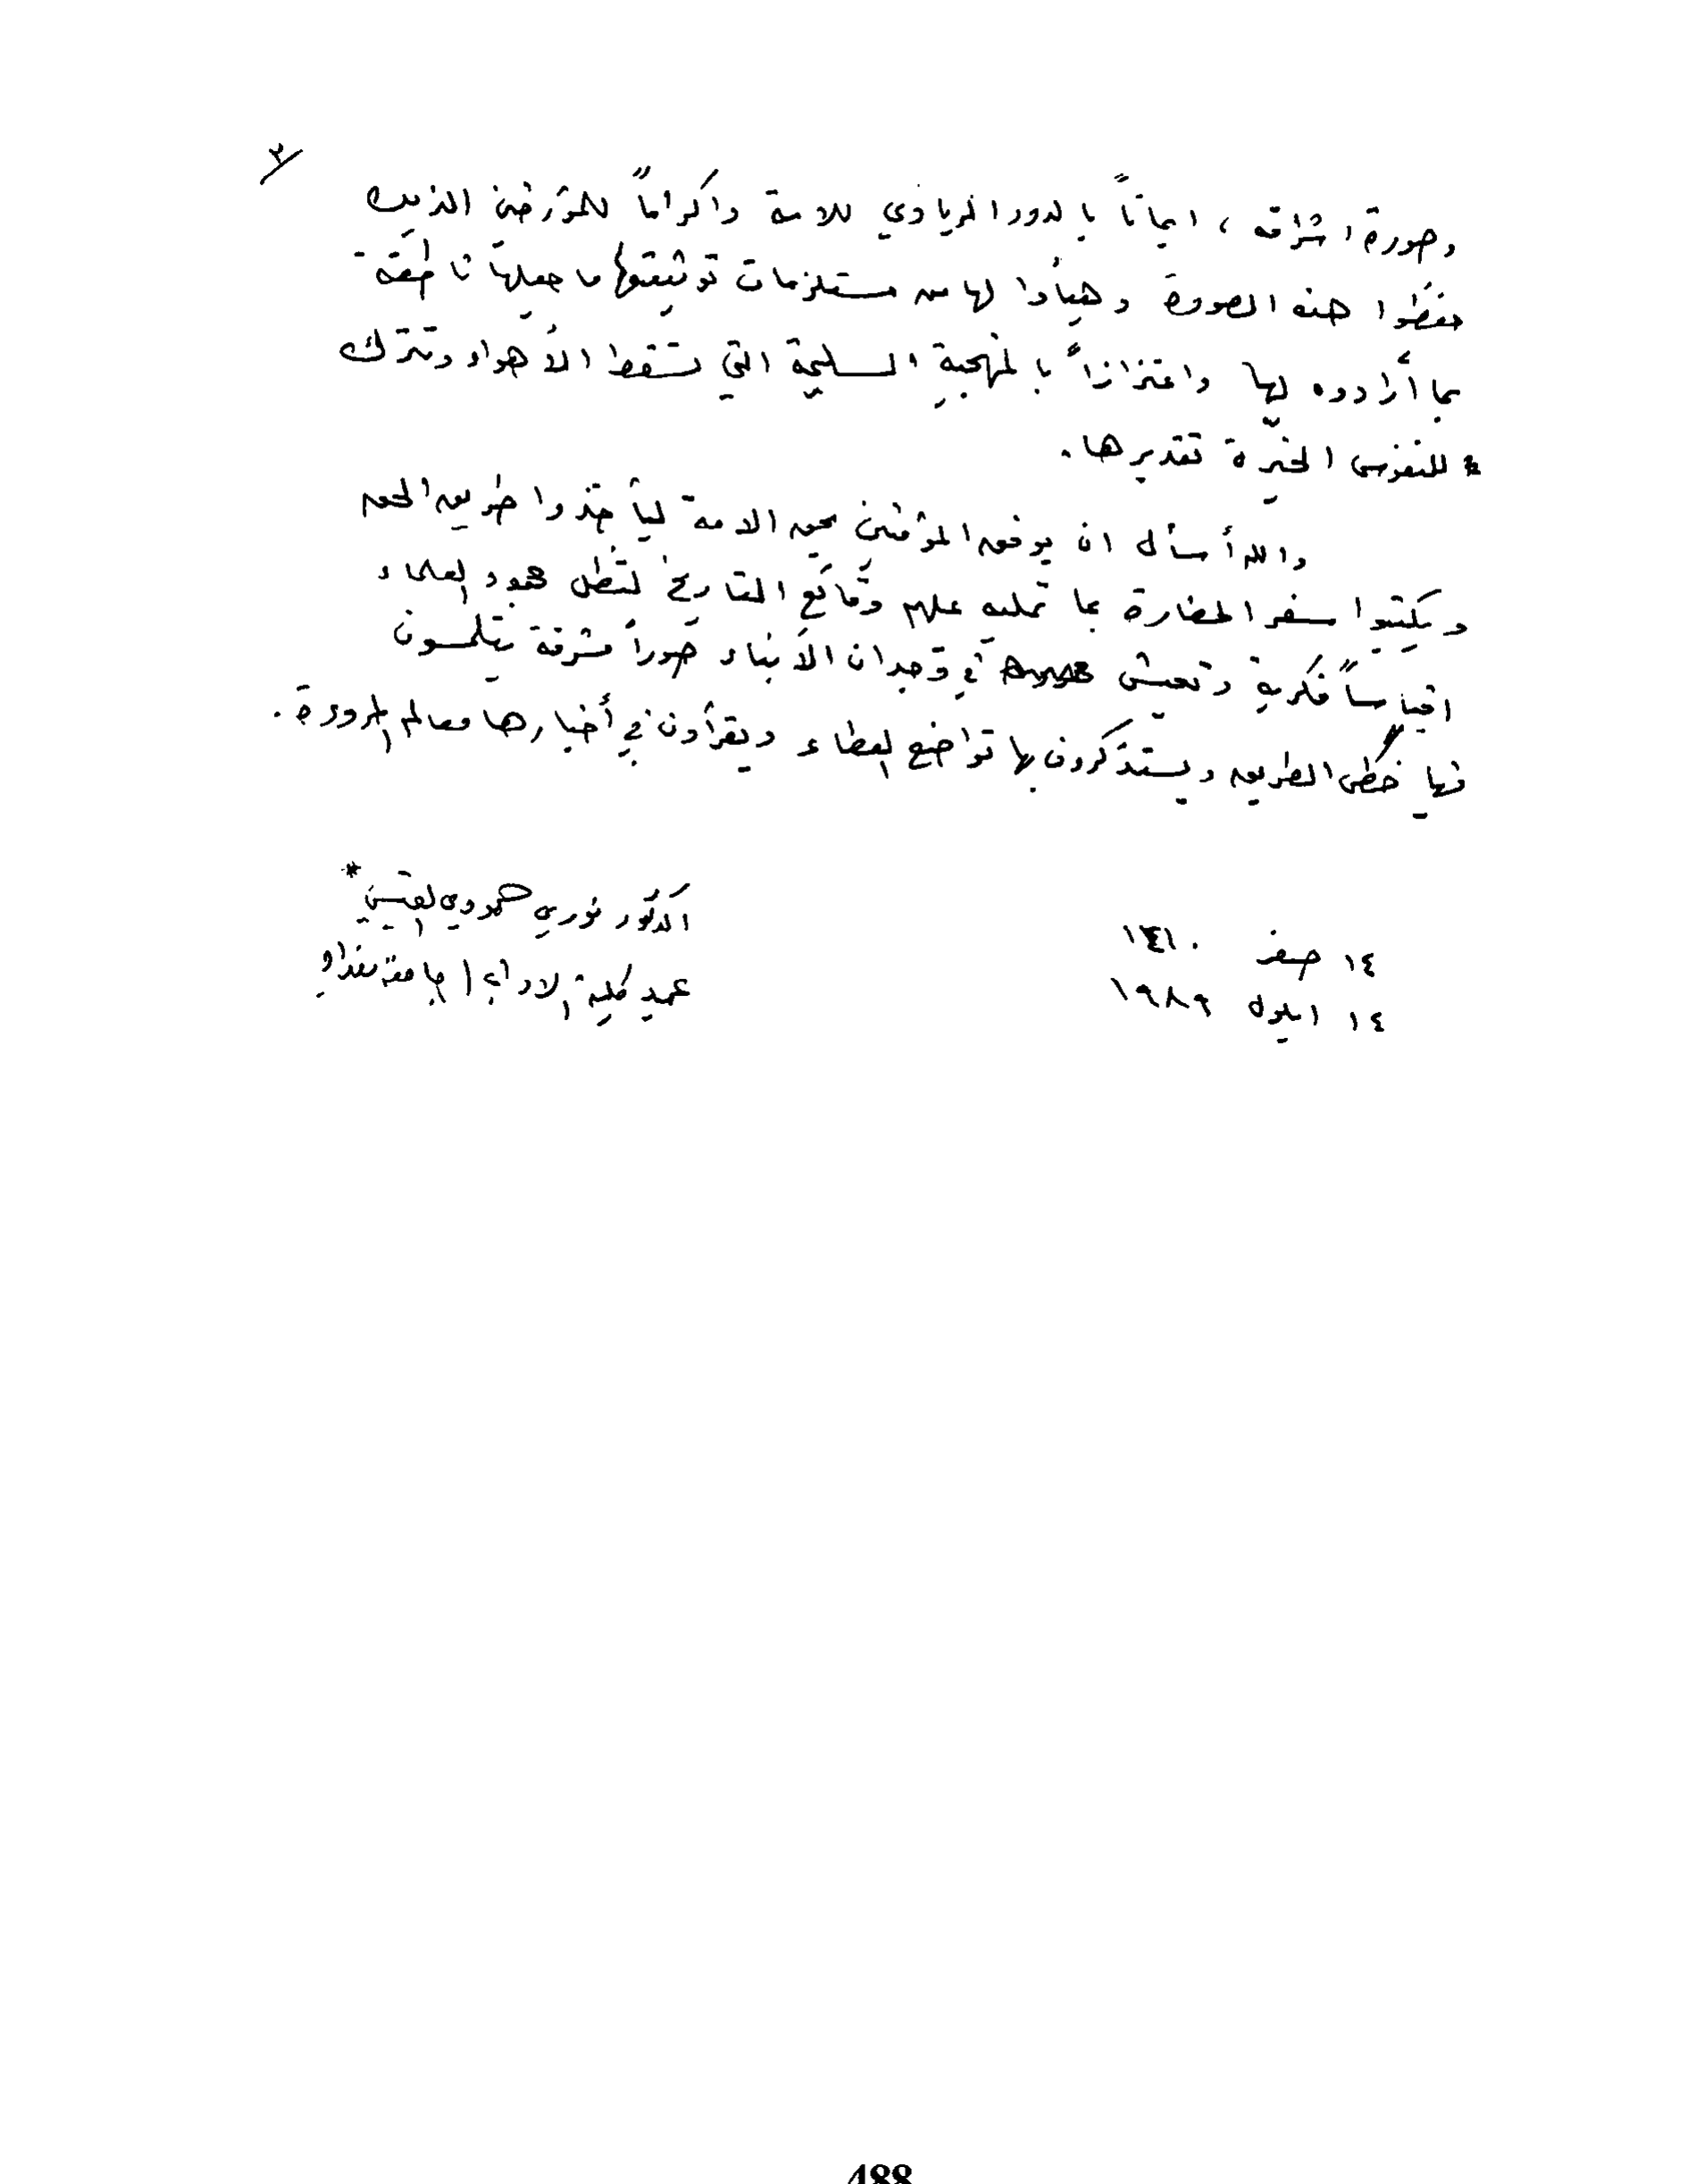 ٣/
وصورة اشراقه ، ايماناً بالدور الريادي للامة واكراماً للمؤرخين الذين
حفظوا هذه الصورة وهيأوا لها من مستلزمات توثيقها ما جعلها ناطقة
بما أرادوه لها واعتزازاً بالمنهجية السليمة التي تسقط الأهواء وتترك
للنفوس الخيّرة تقديرها .
والله أسأل ان يوفق المؤمنين بحق الامة ليأخذوا طريق الحق
ويكتبوا سفر الحضارة بما تمليه عليهم وقائع التاريخ لتظل جهود العلماء
اقباساً فكرية وتعيش في وجدان الأبناء صوراً مشرقة يتلمسون
فيها خطى الطريق ويستذكرون بها تواضع العطاء ويقرأون في أخبارها معالم المروءة .
الدكتور نوري حمودي القيسي *
عميد كلية الاداب / جامعة بغداد
١٤ صفر ١٤١٠
١٤ ايلول ١٩٨٩
488